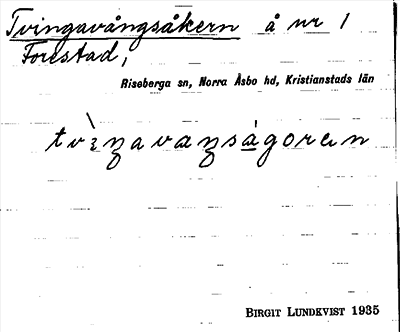 Tvingavångsåkern å nr 1
Forestad,
Riseberga sn, Norra Åsbo hd, Kristianstads län
BIRGIT LUNDKVIST 1935